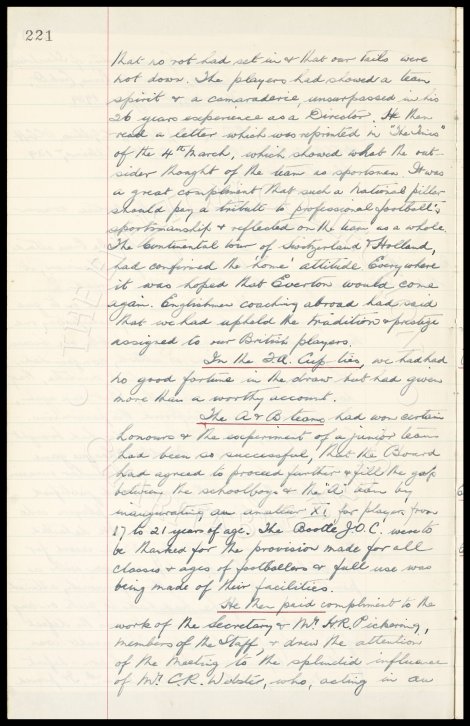 221
that no rot had set in & that our tails were
not down. The players had showed a team
spirit & a camaraderie, unsurpassed in his
26 years experience as a Director. He then
read a letter which was reprinted in "The Times"
of the 4th March, which showed what the out-
sider thought of the team as sportsmen. It was
a great compliment that such a national pillar
should pay a tribute to professional football's
sportsmanship & reflected on the team as a whole.
The Continental tour of Switzerland & Holland,
had confirmed the 'home' attitude. Everywhere
it was hoped that Everton would come
again. Englishmen coaching abroad had said
that we had upheld the tradition & prestige
assigned to our British players.
In the F.A. Cup ties, we had had
no good fortune in the draw but had given
more than a worthy account.
The A & B teams had won certain
honours & the experiment of a junior team
had been so successful, that the Board
had agreed to proceed further & fill the gap
between the schoolboys & the "A" team by
inaugurating an amateur XI for players from
17 to 21 years of age. The Bootle J.O.C. were to
be thanked for the provision made for all
classes & ages of footballers & full use was
being made of their facilities.
He then paid compliment to the
work of the Secretary & Mr. H.R. Pickering,
members of the Staff, & drew the attention
of the Meeting to the splendid influence
of Mr. C.R. Webster, who, acting in an